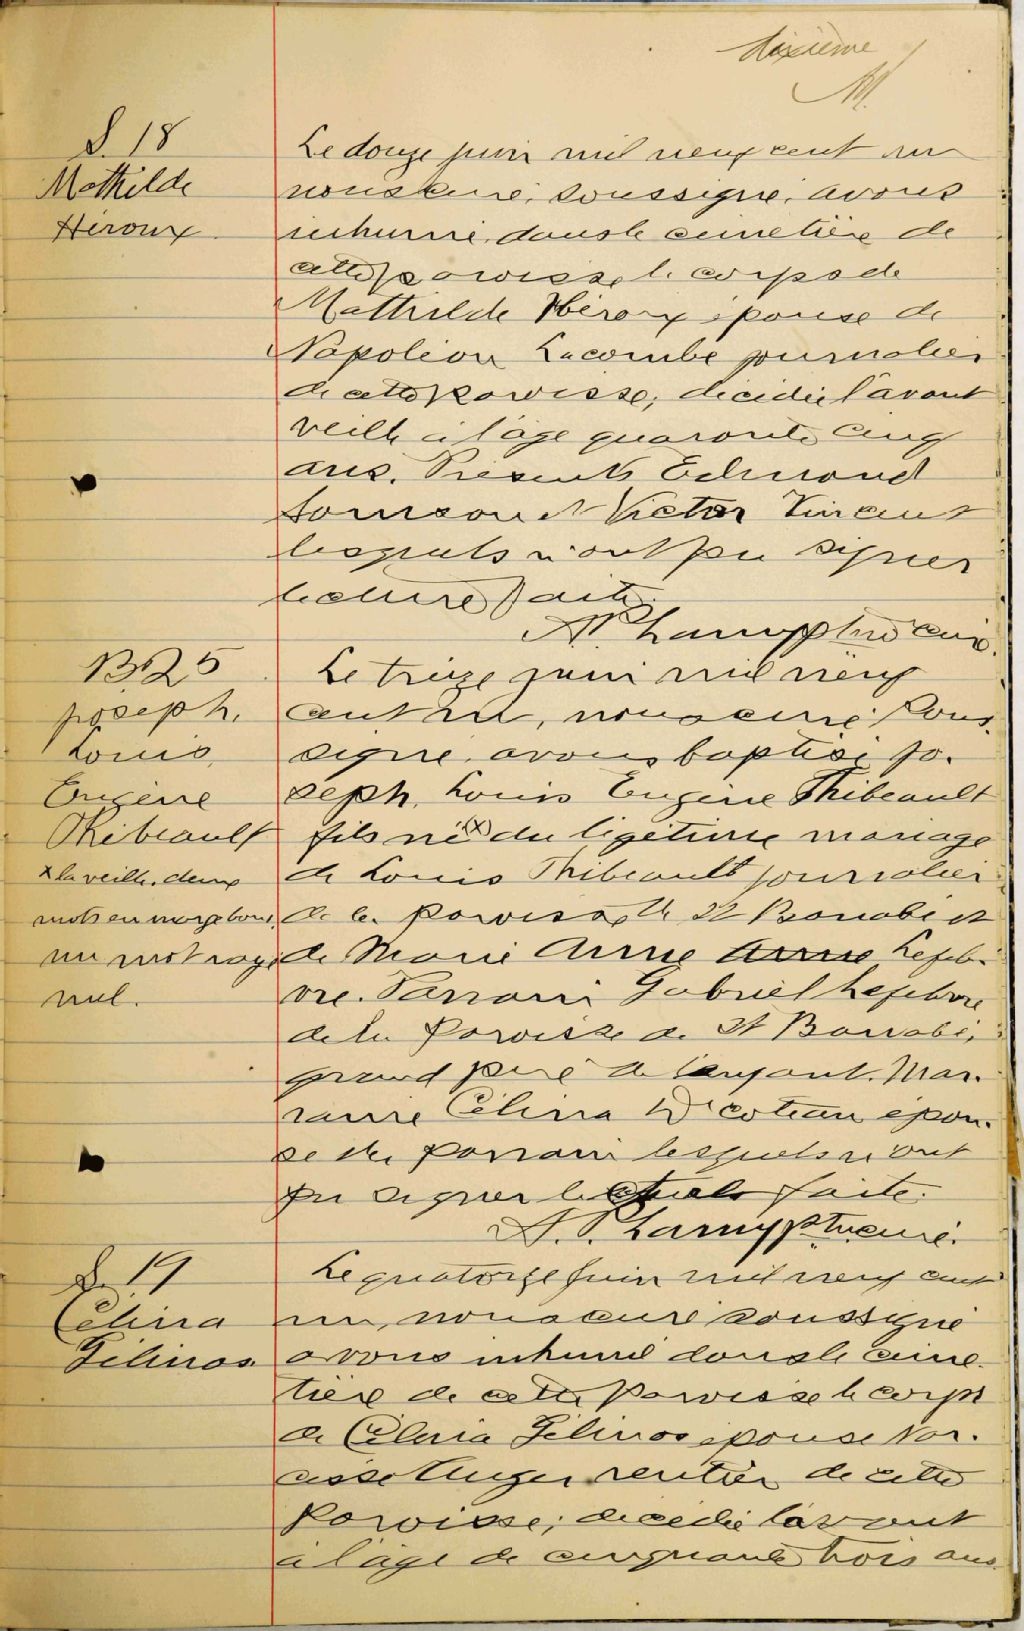 dixième
S. 18
Mathilde
Héroux
Le douze juin mil neuf cent un
nous curé, soussigné, avons
inhumé, dans le cimetière de
cette paroisse le corps de
Mathilde Héroux épouse de
Napoléon Lacombe journalier
de cette paroisse, décédée l'avant
veille à l'âge quarante cinq
ans. Présents Edmond
Samson et Victor Vincent
lesquels n'ont pu signer
lecture faite.
curé.
B 25
Joseph,
Louis,
Eugène
Thibeault
x la veille, deux
mots en marge bons,
un mot rayé
nul.
Le treize juin mil neuf
cent un, nous curé sous-
signé, avons baptisé Jo-
seph, Louis Eugène Thibeault
fils né (x) du ligétime mariage
de Louis Thibeault journalier
de la paroisse de St Barnabé et
de Marie Anne Anne Lefeb-
vre. Parrain Gabriel Lefebvre
de la Paroisse de St Barnabé,
grand père de l'enfant. Mar-
raine Célina épou-
se du parrain lesquels n'ont
pu signer lecture faite.
curé.
S. 19
Célina
Gélinas
Le quatorze juin mil neuf cent
un, nous curé soussigné
avons inhumé dans le cime-
tière de cette paroisse le corps
de Célina Gélinas épouse Nar-
cisse Auger rentier de cette
Paroisse, décédée l'avant
à l'âge de cinquante trois ans